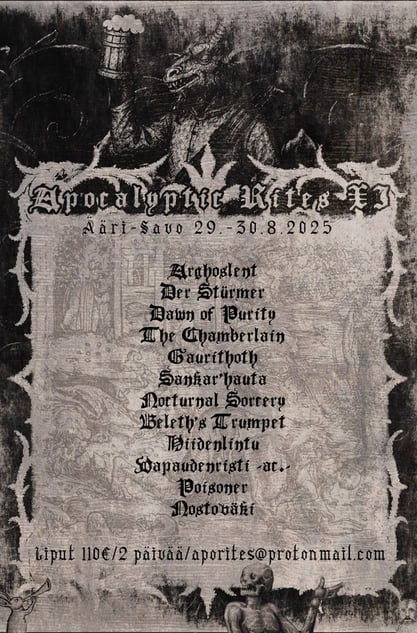 Apocalyptic Rites XI
Ääri-Savo 29.-30.8.2025
Arghoslent
Der Stürmer
Dawn of Purity
The Chamberlain
Gaurithoth
Sankar'hauta
Nocturnal Sorcery
Beleth's Trumpet
Hiidenlintu
Vapaudenristi -ac.-
Poisoner
Nostoväki
Liput 110€/2 päivää/aporites@protonmail.com